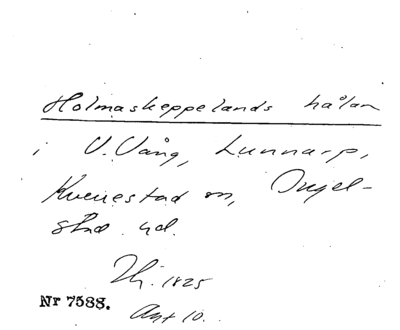 Holmaskeppelands hålan
i V. Vång, Lunnarp,
Kverrestad sn, Ingel-
stad hd.
1825
Nr 7588. Akt 10.